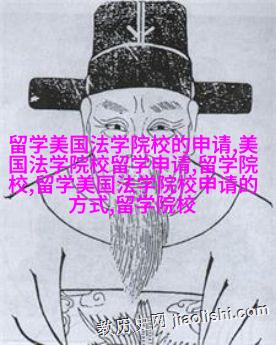 留学美国法学院校的申请,美
国法学院校留学申请,留学院
校,留学美国法学院校申请的
方式,留学院校
教历史网 jiaolishi.com